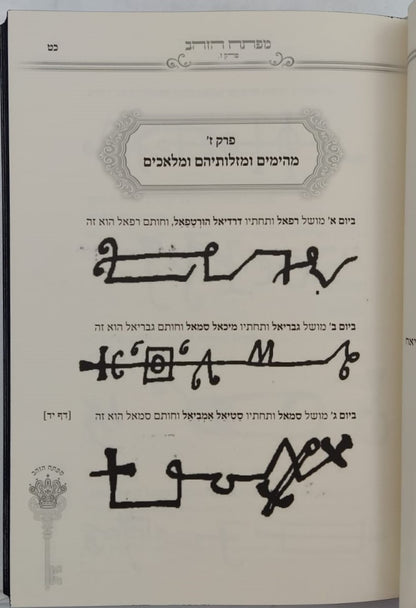 מפתח הזהב
כט
פרק ז'
פרק ז'
מהימים ומזלותיהם ומלאכים
ביום א' מושל רפאל ותחתיו דרדיאל הורטפאל, וחותם רפאל הוא זה
ביום ב' מושל גבריאל ותחתיו מיכאל סמאל וחותם גבריאל הוא זה
ביום ג' מושל סמאל ותחתיו סטיאל אמביאל וחותם סמאל הוא זה [דף יד]
מפתח הזהב